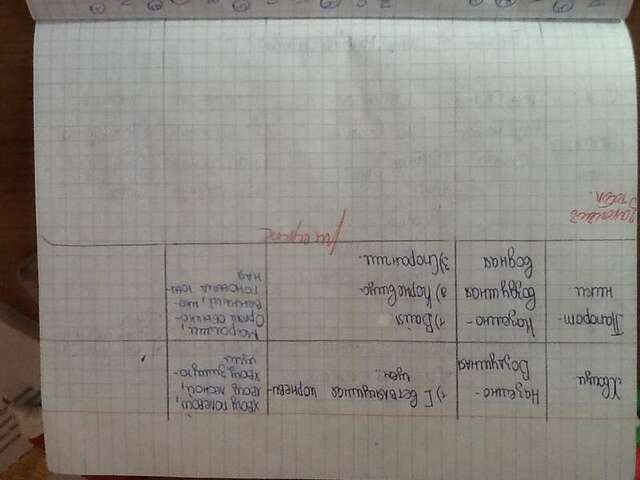 Хвощи
Наземно-
Воздушная
1) С ветвлящимся корневи-
щем..
Хвощ полевой,
хвощ лесной,
хвощ зимую-
щий
Папорот-
ники.
Наземно-
воздушная
водная
1) Вайя
2) Корневища
3) Спорангии.
Орляк обыкно-
венный,
рисунок
закончить
табл.